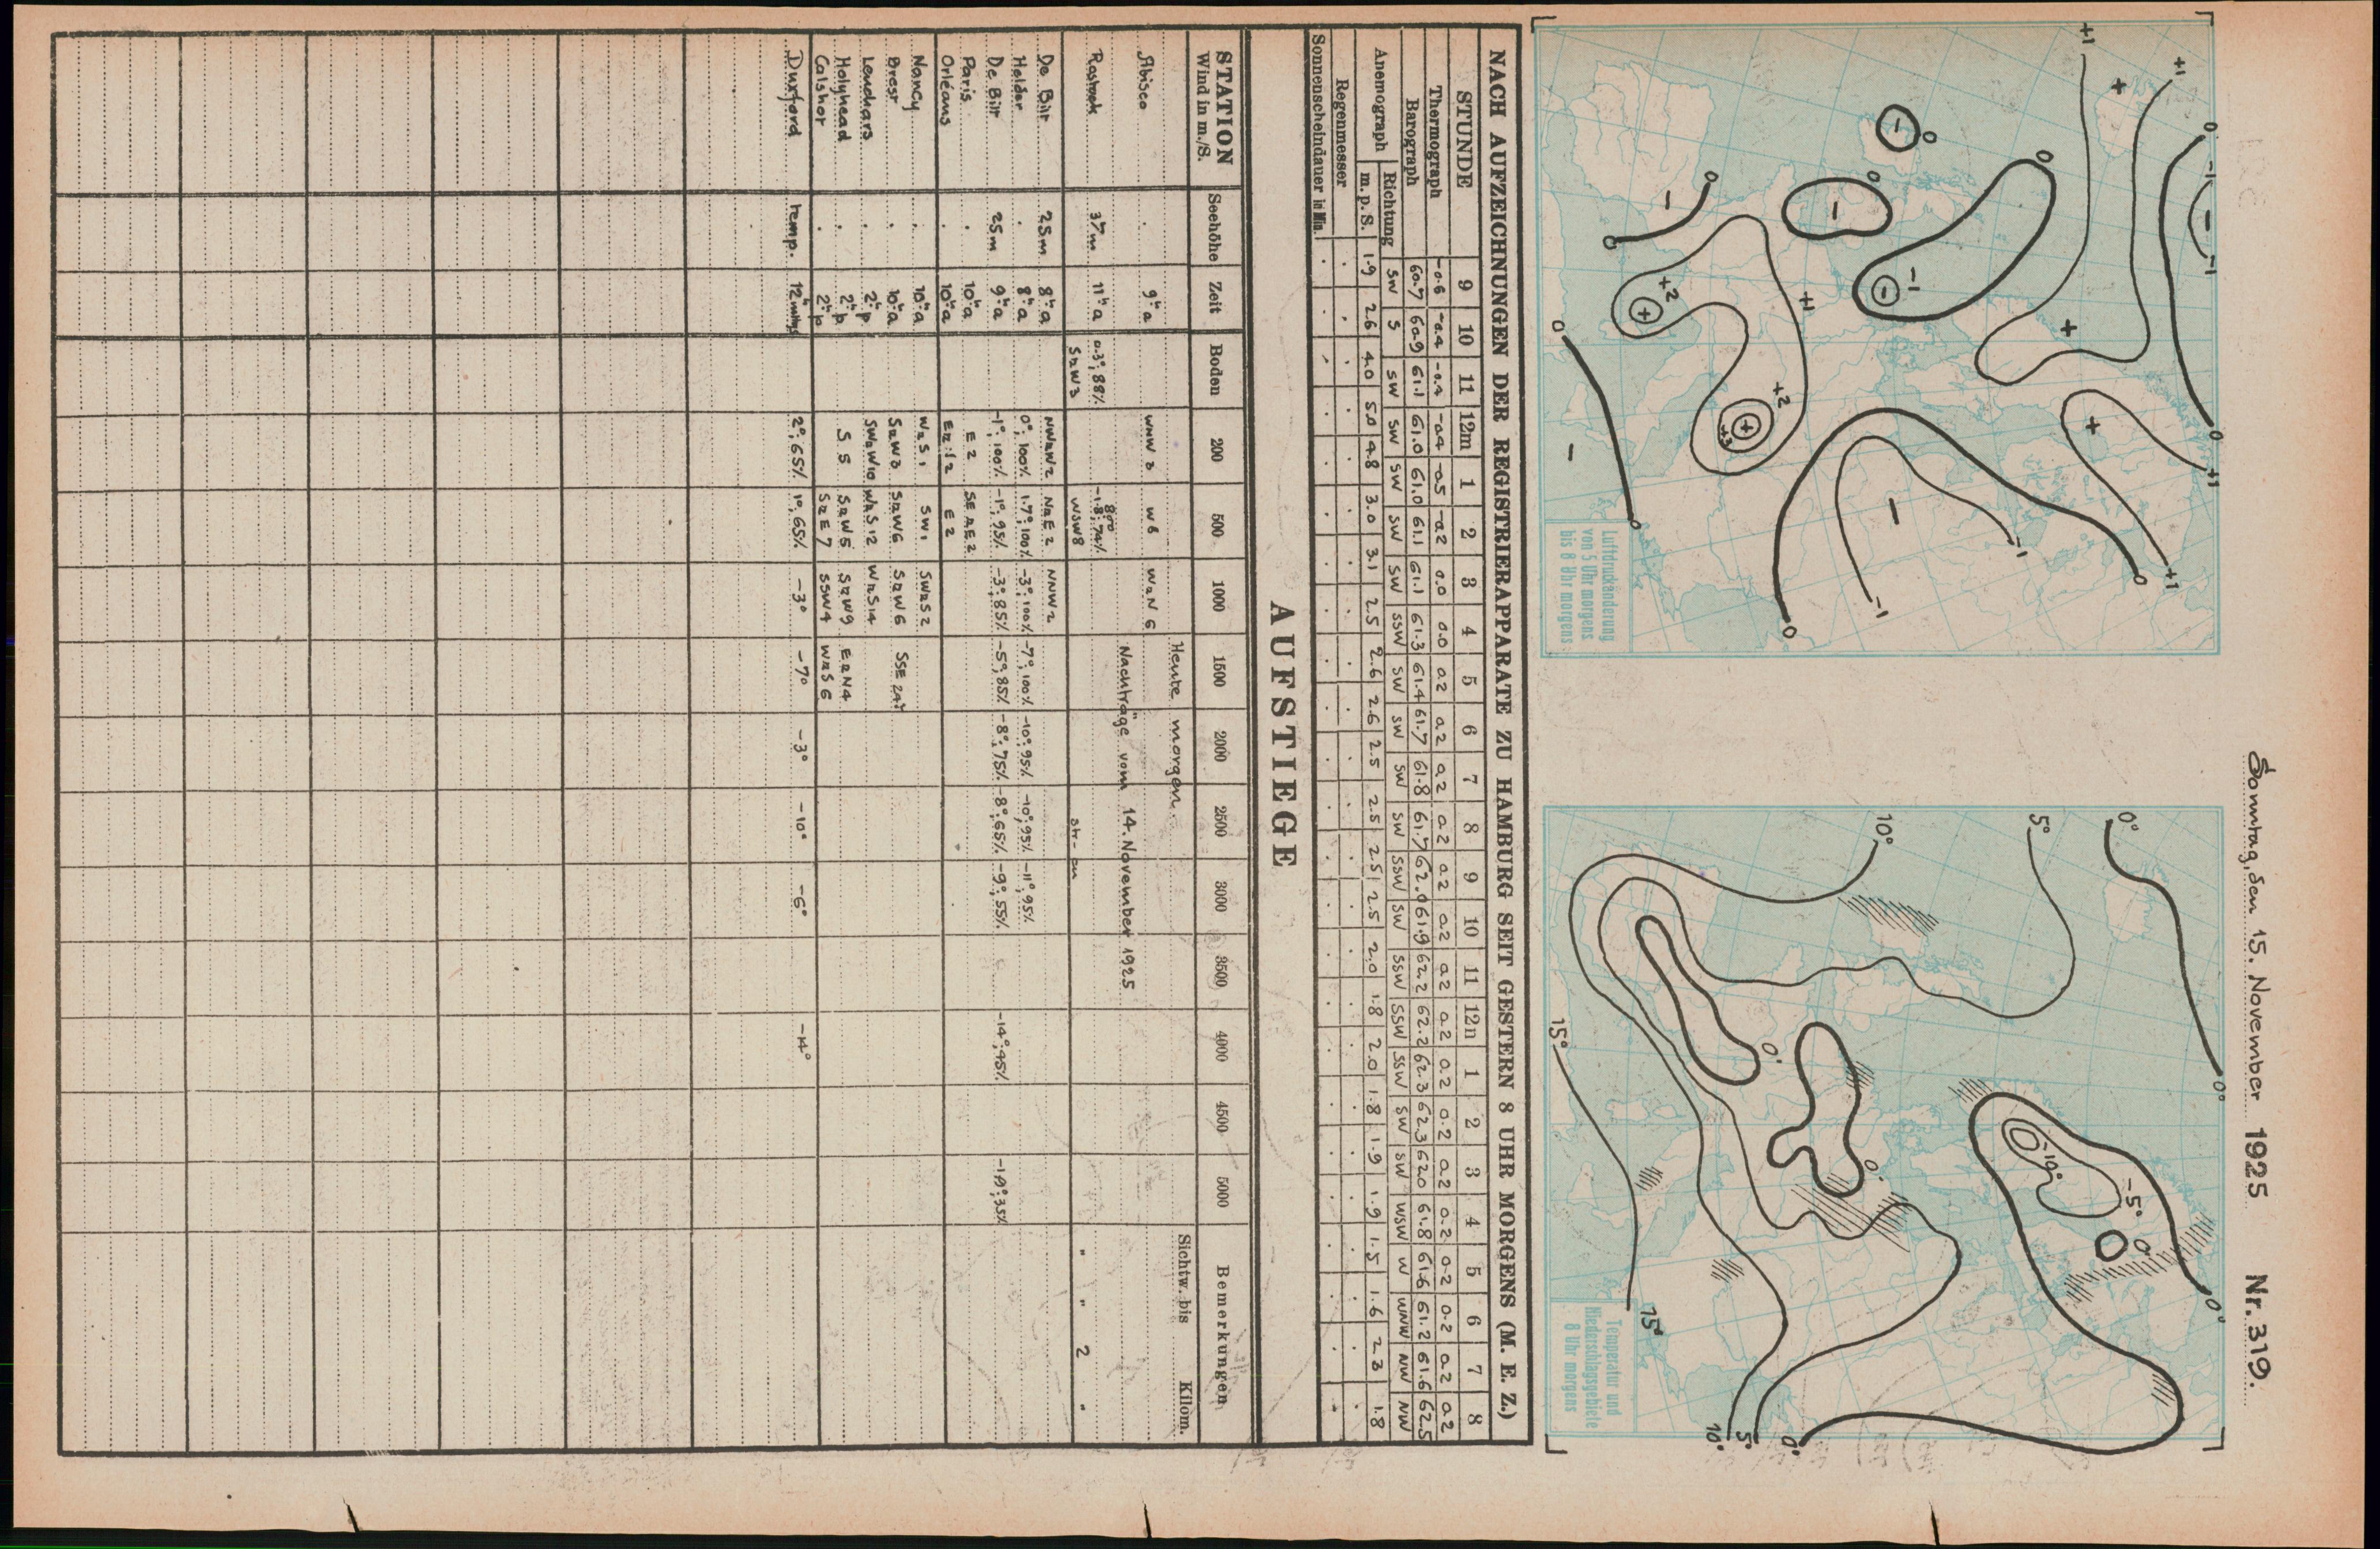 Sonntag, den 15. November 1925 Nr. 319.
+1 +1 0 -1 -1 0 +1
+ - +
0 0 0 +1 + -1 0
- - -1 - -1 0
0 - 0 +2 + +2 + +3
0 - 0
Luftdruckänderung
von 5 Uhr morgens
bis 8 Uhr morgens
0° 0° 0°
5° -5° 0°
10° -10°
0° 0°
15° 15°
10° 5° 0°
Temperatur und
Niederschlagsgebiete
8 Uhr morgens
NACH AUFZEICHNUNGEN DER REGISTRIERAPPARATE ZU HAMBURG SEIT GESTERN 8 UHR MORGENS (M. E. Z.)
STUNDE 9 10 11 12m 1 2 3 4 5 6 7 8 9 10 11 12n 1 2 3 4 5 6 7 8
Thermograph -0.6 -0.4 -0.4 -0.4 -0.5 -0.2 0.0 0.0 0.2 0.2 0.2 0.2 0.2 0.2 0.2 0.2 0.2 0.2 0.2 0.2 0.2 0.2 0.2 0.2
Barograph 60.7 60.9 61.1 61.0 61.0 61.1 61.1 61.3 61.4 61.7 61.8 61.7 62.0 61.9 62.2 62.2 62.3 62.3 62.0 61.8 61.6 61.2 61.6 62.5
Anemograph Richtung SW S SW SW SW SW SW SSW SW SW SW SW SSW SW SSW SSW SSW SW SW WSW W WNW NW NW
m. p. S. 1.9 2.6 4.0 5.0 4.8 3.0 3.1 2.5 2.6 2.6 2.5 2.5 2.5 2.5 2.0 1.8 2.0 1.8 1.9 1.9 1.5 1.6 2.3 1.8
Regenmesser . . . . . . . . . . . . . . . . . . . . . . . .
Sonnenscheindauer in Min. . . . . . . . . . . . . . . . . . . . . . . . .
AUFSTIEGE
STATION Seehöhe Zeit Boden 200 500 1000 1500 2000 2500 3000 3500 4000 4500 5000 Bemerkungen
Wind in m./S.
Sichtw. bis Kilom.
Heute morgen.
Abisco . 9h a WNW 3 W 6 W z N 6
Nachträge vom 14. November 1925
Rostock 37m 11h a 0.3°; 88% 800 -1.8; 74%
SzW3 WSW8 str-cu " " 2 "
De Bilt 25m 8h a NWzW2 NzE 2 NNW 2
Helder . 8h a 0°; 100% 1.7°; 100% -3°; 100% -7°; 100% -10°; 95% -10°; 95% -11°; 95%
De Bilt 25m 9h a -1°; 100% -1°; 95% -3°; 85% -5°; 85% -8°; 75% -8°; 65% -9°; 55% -14°; 45% -19°; 35%
Paris . 10h a E 2 SE z E 2
Orléans . 10h a E 2
Nancy . 10h a WzS 1 SW 1 SWzS 2
Brest . 10h a SzW3 SzW6 SzW 6 SSE
Leuchars . 2h p SWzW10 WzS 12 WzS14
Holyhead . 2h p S 5 SzW5 SzW9 EzN4
Calshot . 2h p SzE 7 SSW4 WzS 6
Duxford temp. 12h mittgs 2°; 65% 1°; 65% -3° -7° -3° -10° -6° -14°